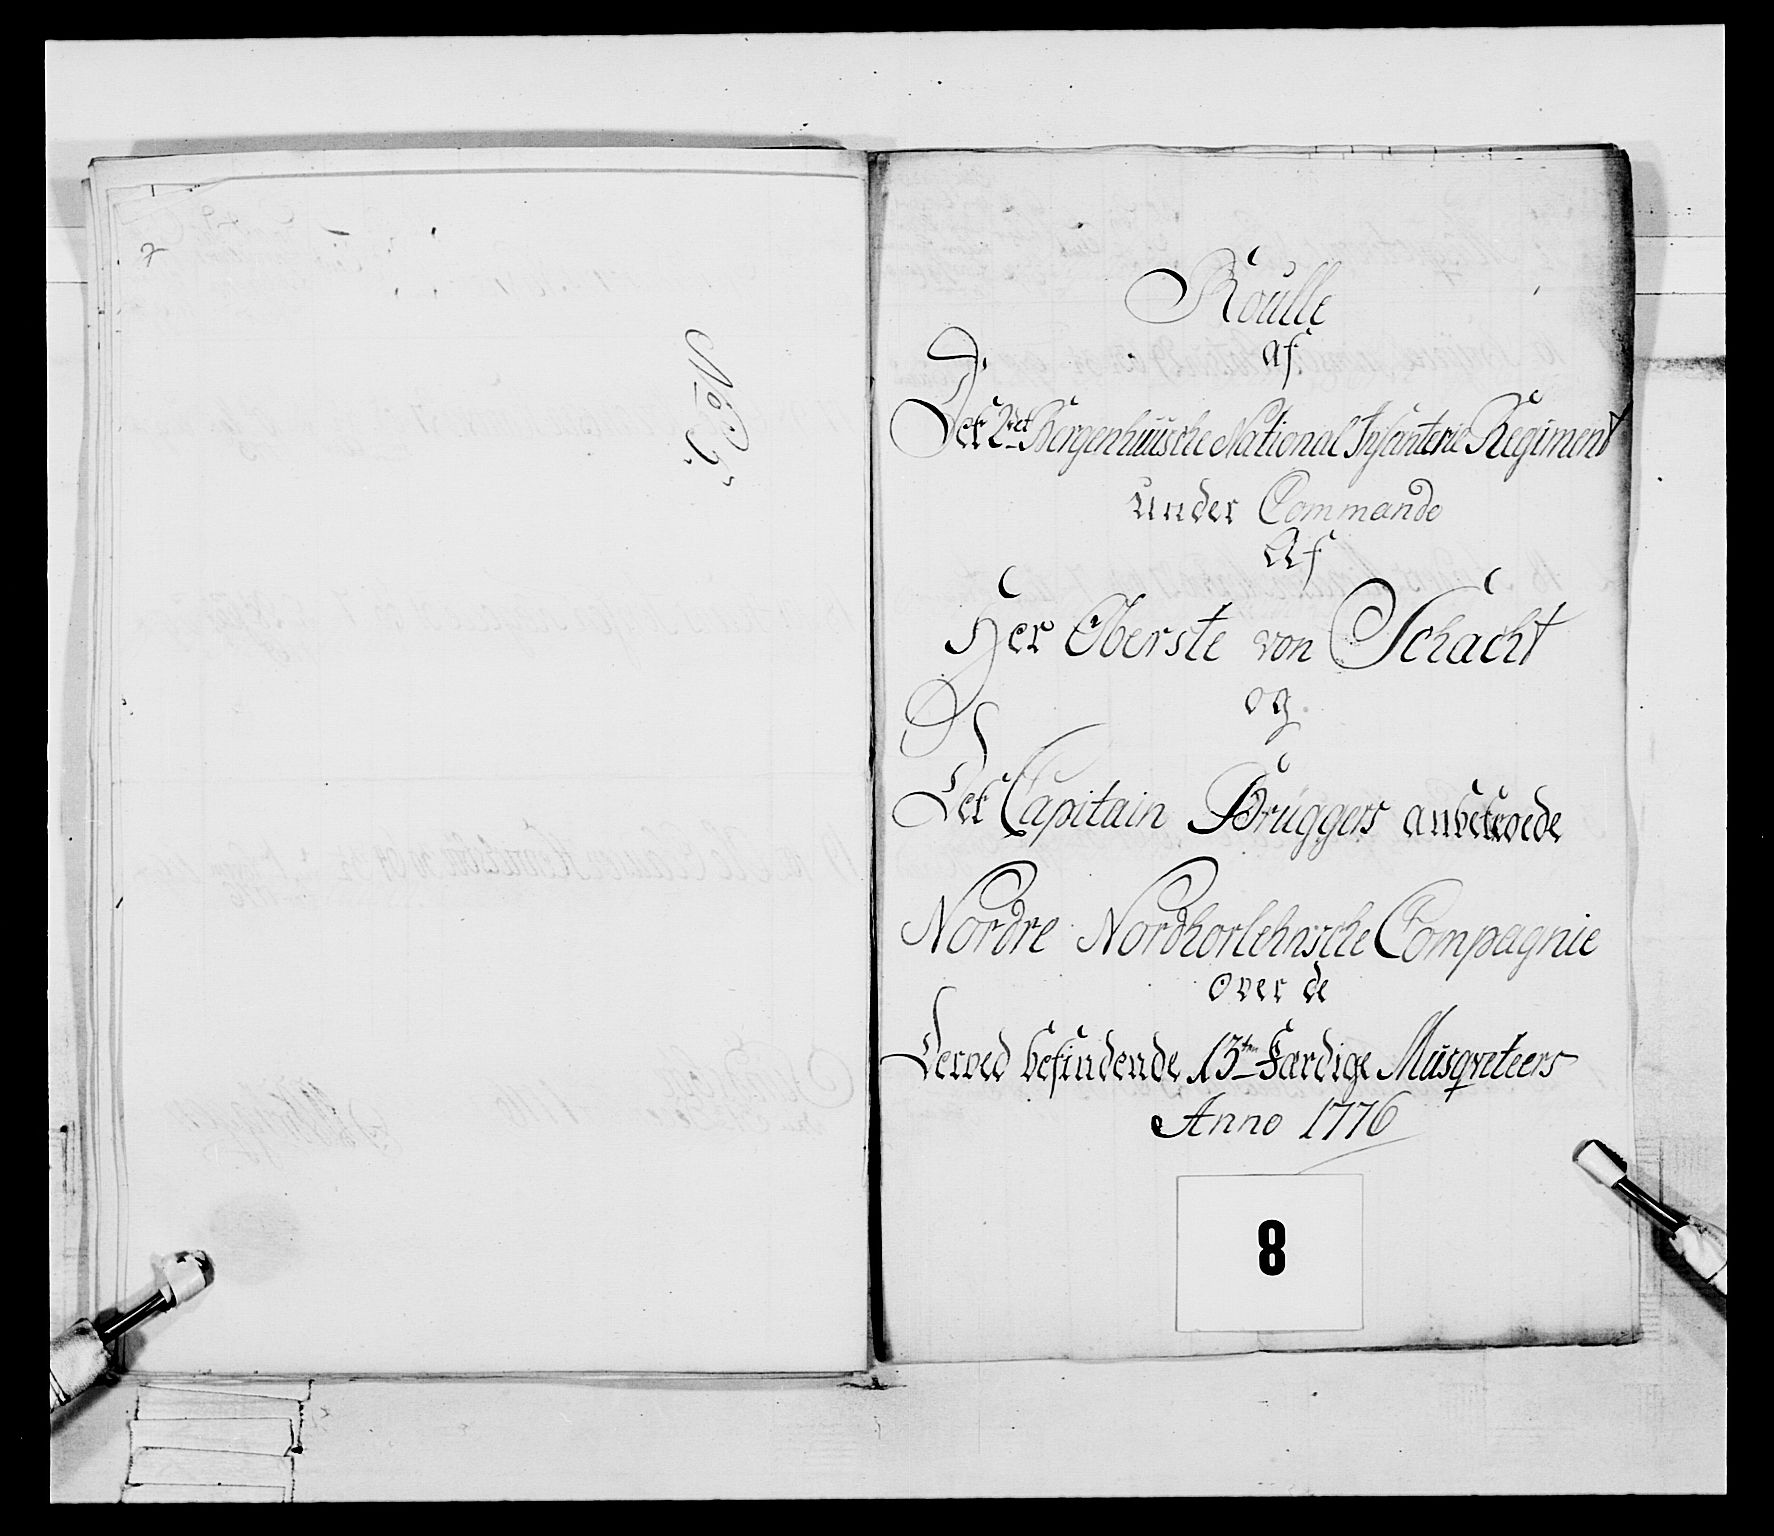 No 5.
Roulle
af
Det 2det Bergenhuusche National Infanterie Regiment
under Commando
Af
Her Oberste von Schacht
og
Det Capitain Brüggers anbetroede
Nordre Nordhorlehnsche Compagnie
over de
Derved befindende 13ten Færdige Musqveteers
Anno 1776
8